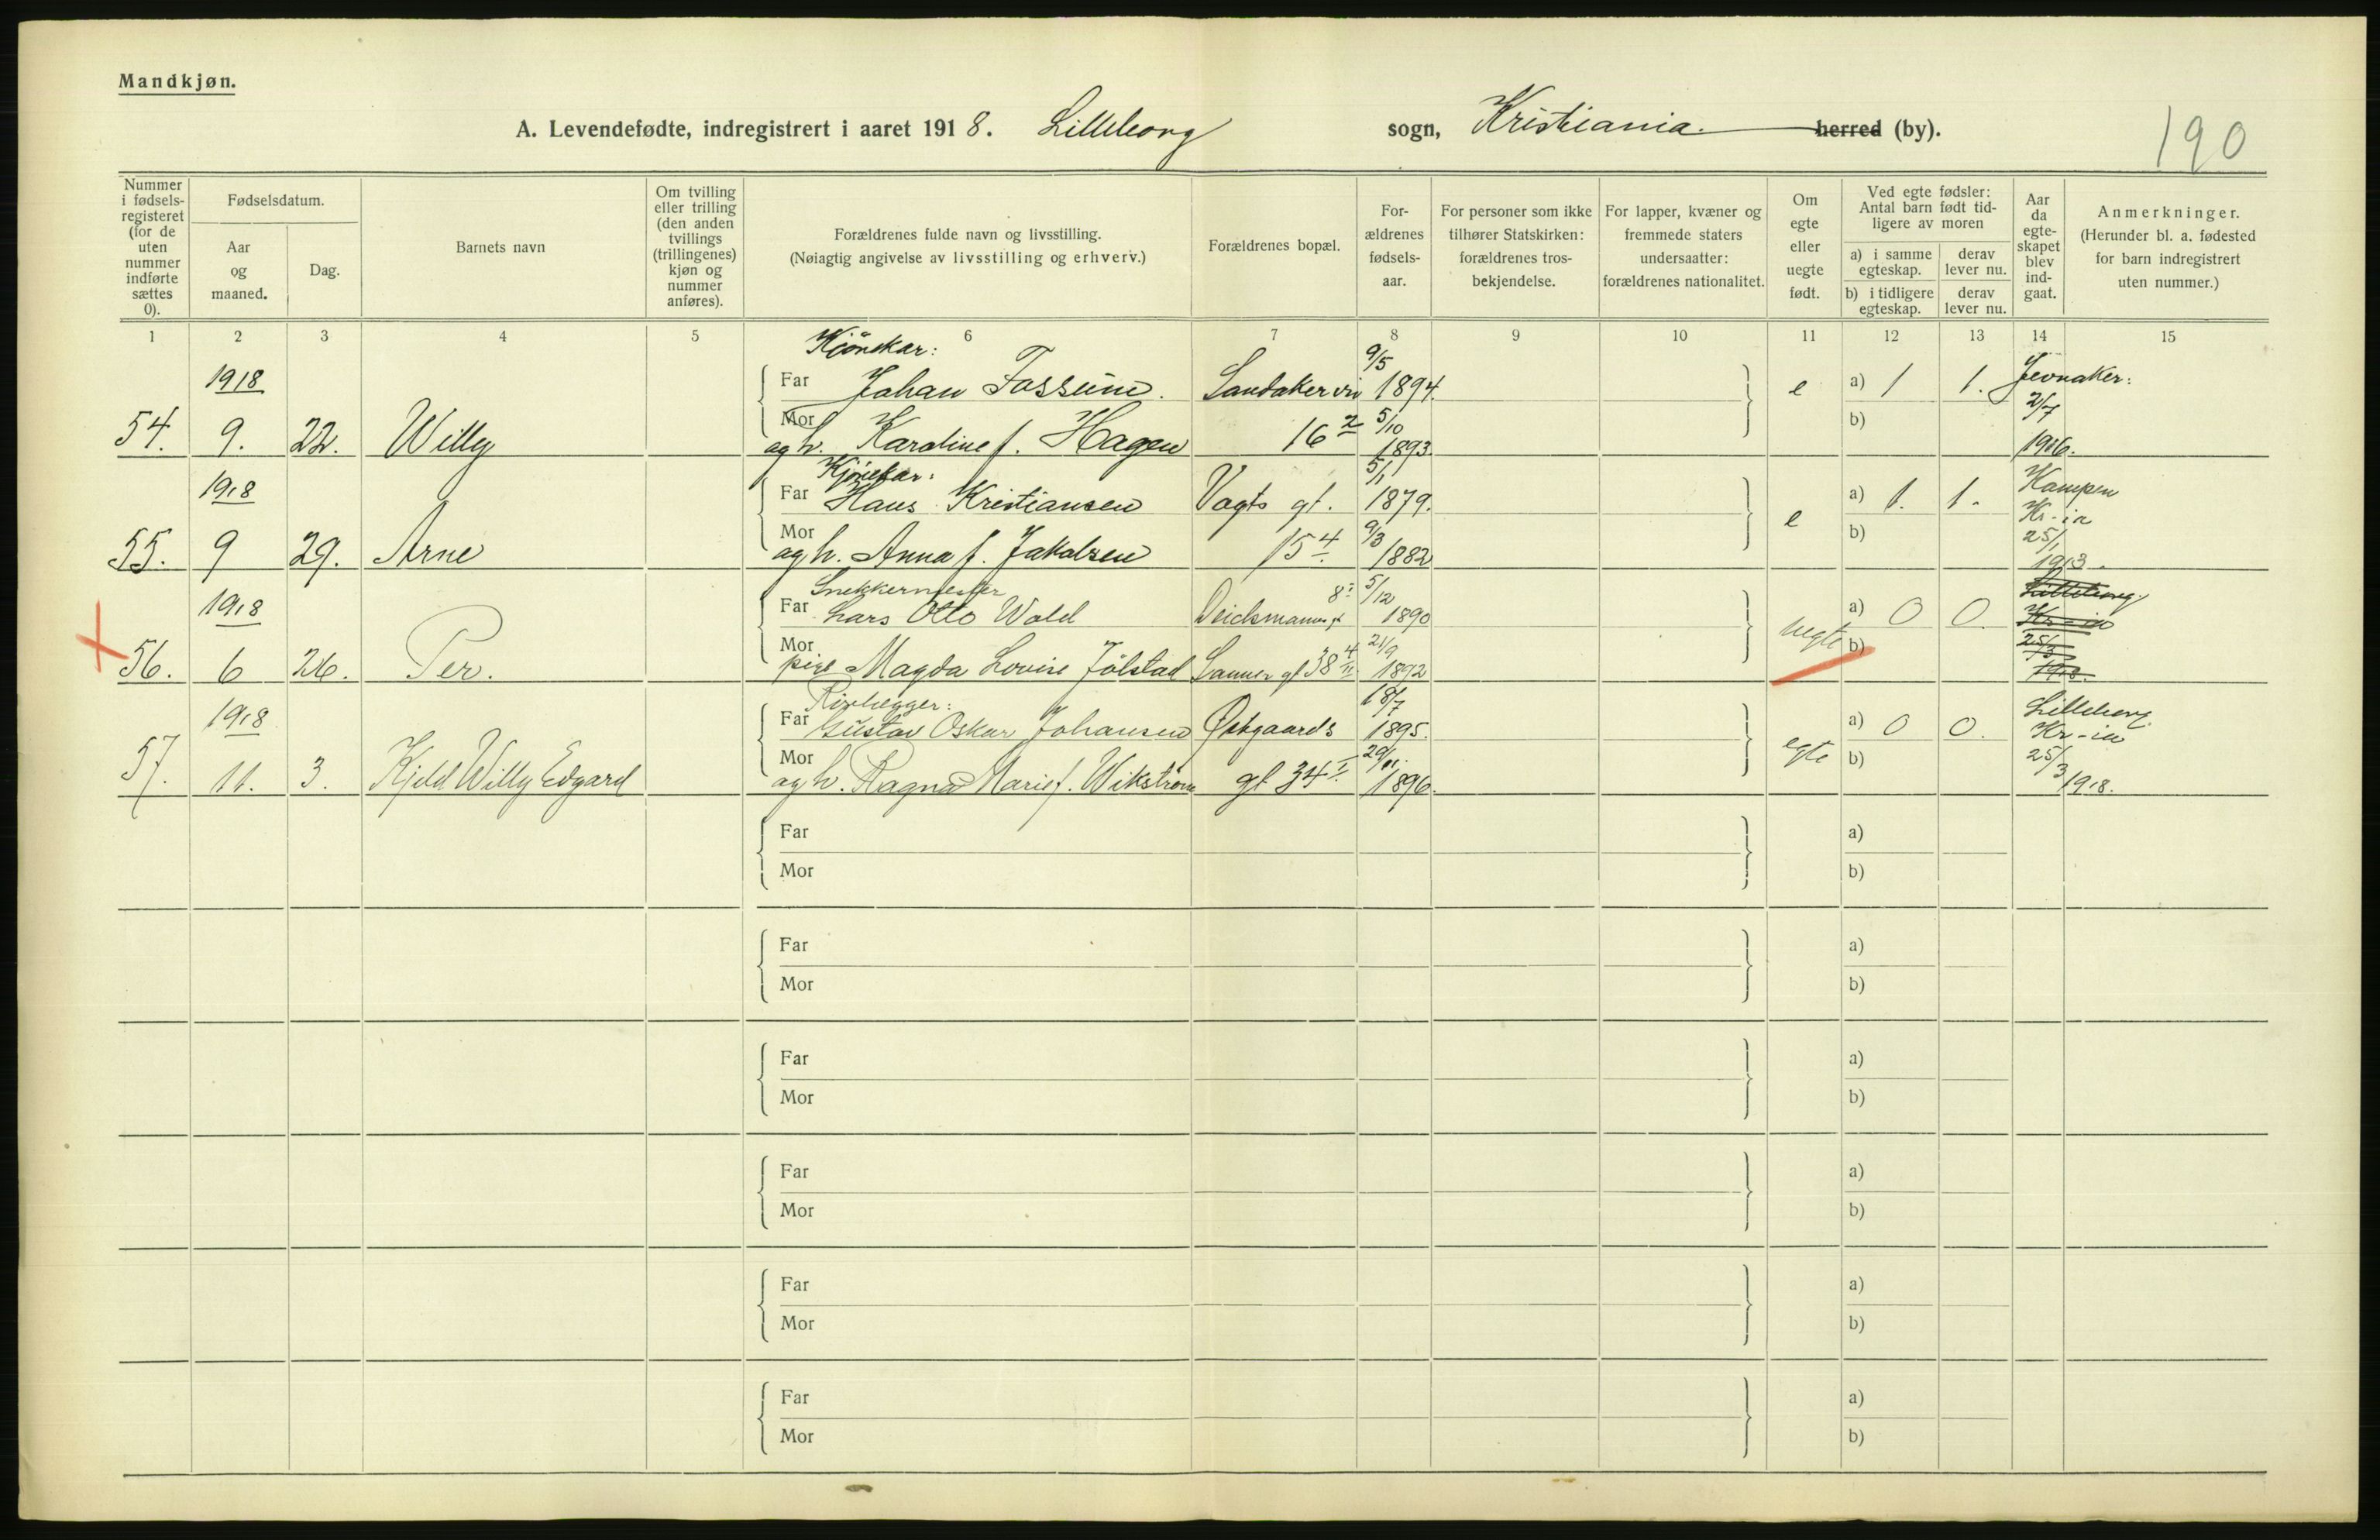 Mandkjøn.
A. Levendefødte, indregistrert i aaret 1918. Lilleborg sogn, Kristiania herred (by).
190
Nummer i fødsels-registeret (for de uten nummer indførte sættes 0).
Fødselsdatum.
Aar og maaned.
Dag.
Barnets navn
Om tvilling eller trilling (den anden tvillings (trillingenes) kjøn og nummer anføres).
Forældrenes fulde navn og livsstilling.
(Nøiagtig angivelse av livsstilling og erhverv.)
Forældrenes bopæl.
For-ældrenes fødsels-aar.
For personer som ikke tilhører Statskirken: forældrenes tros-bekjendelse.
For lapper, kvæner og fremmede staters undersaatter: forældrenes nationalitet.
Om egte eller uegte født.
Ved egte fødsler: Antal barn født tid-ligere av moren
a) i samme egteskap.
derav lever nu.
b) i tidligere egteskap.
derav lever nu.
Aar da egte-skapet blev ind-gaat.
Anmerkninger.
(Herunder bl. a. fødested for barn indregistrert uten nummer.)
1 2 3 4 5 6 7 8 9 10 11 12 13 14 15
Kjørekar:
1918 Far Johan Fossum. Sandakervn 9/5 1894. e a) 1 1. Jevnaker:
54. 9. 22. Willy Mor og h. Karoline f. Hagen 16 2 5/10 1893. b) 2/7 1916.
Kjørekar:
1918 Far Hans Kristiansen Vogts gt. 5/1 1879. e a) 1. 1. Kampen Kr-ia
55. 9 29. Arne Mor og h. Anna f. Jakobsen 15 4 9/3 1882 b) 25/1 1913.
Snekkermester
1918 Far Lars Otto Wold Deichmannsgt 8 5/12 1890 uegte a) 0 0. Lilleborg Kr-ia
56. 6 26. Per. Mor pike Magda Lovise Jölstad Sanner gt 38 4 II 21/9 1892 b) 25/3 1918.
Rørlegger:
1918 Far Gustav Oskar Johansen Østgaards 18/7 1895. egte a) 0 0. Lilleborg. Kr-ia
57. 11. 3. Kjell Willy Edgard Mor og h. Ragna Marie f. Wikstrøm gt 34 I 29/11. 1896. b) 25/3 1918.
Far a)
Mor b)
Far a)
Mor b)
Far a)
Mor b)
Far a)
Mor b)
Far a)
Mor b)
Far a)
Mor b)